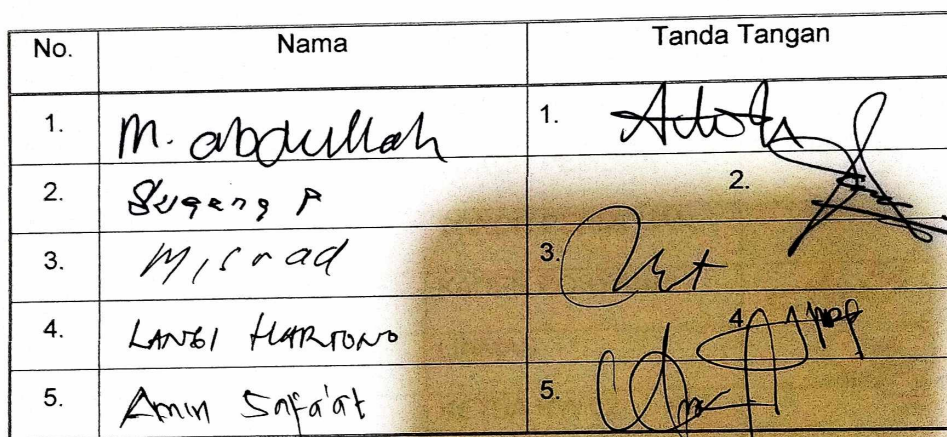 No. Nama Tanda Tangan
1. M. abdullah 1.
2. Sugeng P 2.
3. Misnad 3.
4. HARTONO 4.
5. Amin Safa'at 5.